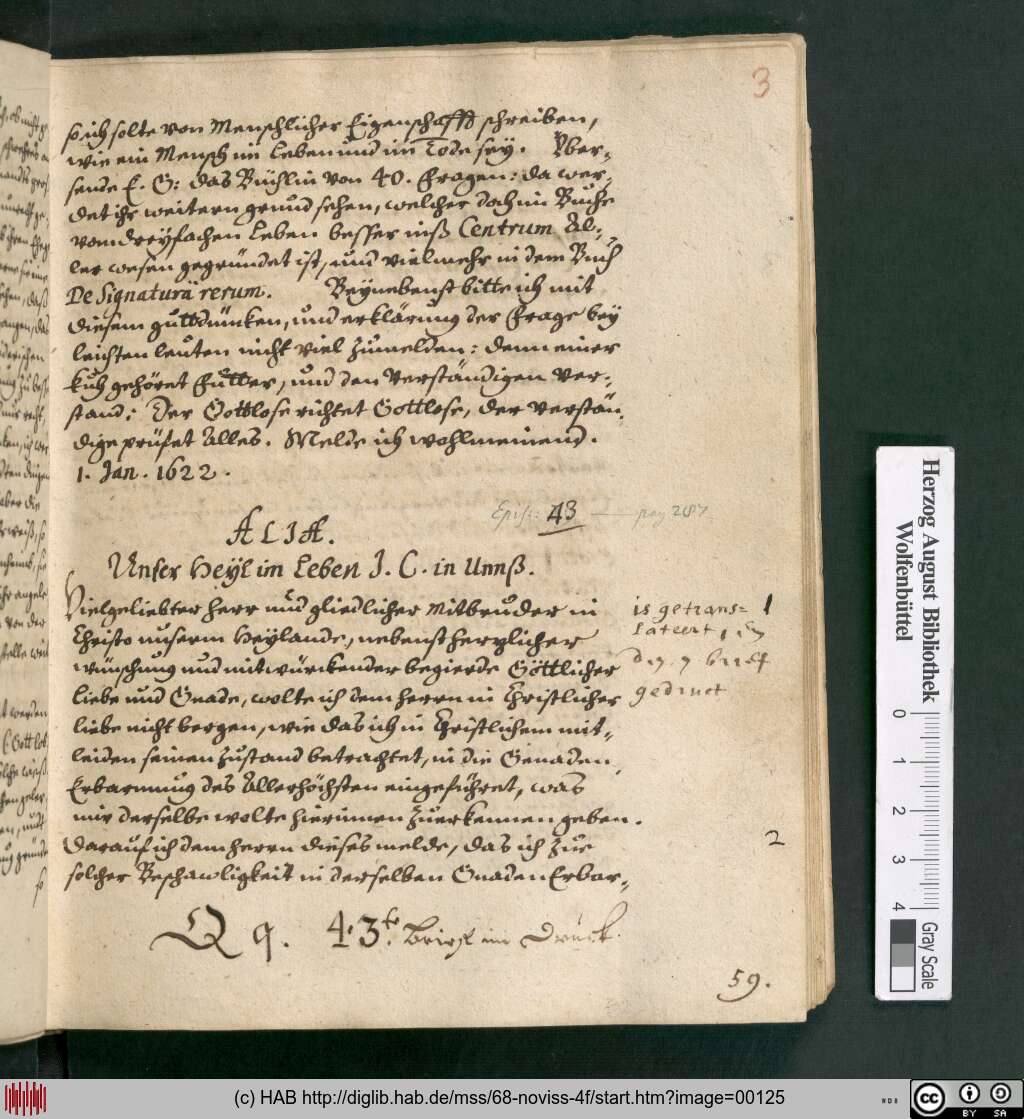 3
so ich solte von Menschlicher Eigenschafft schreiben,
wie ein Mensch im Leben und im Tode sey. Vber-
sende E. G: das Büchlin von 40. Fragen: da wer-
det ihr weitern grund sehen, welcher doch im Buche
vom dreyfachen Leben besser inß Centrum Al-
ler wesen gegründet ist, und vielmehr in dem Buch
De Signaturâ rerum. Beynebenst bitte ich mit
diesem guttdüncken, und erklärung der Frage bey
leichten leuten nicht viel zumelden: denn einer
kuh gehöret Futter, und den Verständigen Ver-
stand: Der Gottlose richtet Gottlose, der verstän-
dige prüfet Alles. Melde ich wohlmeinend.
1. Jan. 1622.
Epist: 43 — pag 287
ALIA.
Unser Heyl im Leben J. C. in Unnß.
Vielgeliebter Herr und gliedlicher Mitbruder in
Christo unserm Heylande, nebenst hertzlicher
wünschung und mitwürckender begierde Göttlicher
liebe und Gnade, wolte ich dem herrn in Christlicher
liebe nicht bergen, wie das ich in Christlichem mit-
leiden seinen zustand betrachtet, in die Genaden
Erbarmung des Allerhöchsten eingeführet, was
mir derselbe wolte hierinnen zuerkennen geben.
Darauf ich dem herrn dieses melde, das ich zue
solcher Beschawligkeit in derselben Gnaden Erbar-
is getrans= 1
lateert,
gedruct
2
Qq. 43.te brief im Druck.
59.
Herzog August Bibliothek
Wolfenbüttel
0 1 2 3 4
Gray Scale
(c) HAB http://diglib.hab.de/mss/68-noviss-4f/start.htm?image=00125
cc BY SA